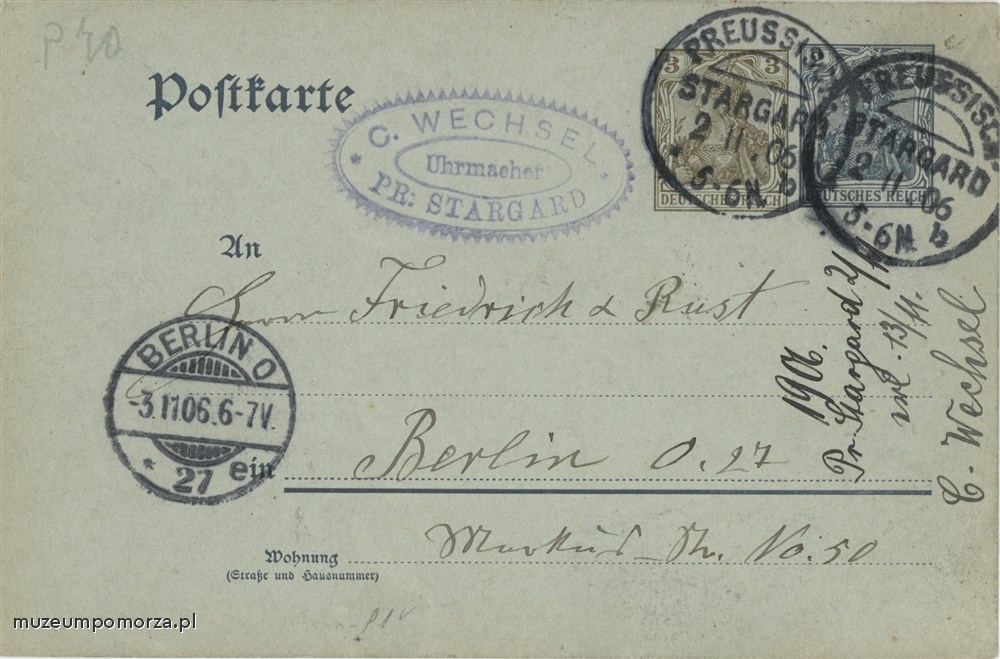 P 40
Postkarte
C. WECHSEL
Uhrmacher
PR: STARGARD
3 3
DEUTSCHES REICH
2
DEUTSCHES REICH
PREUSSISCH
STARGARD
2 11. 06
5-6N. b
PREUSSISCH-
STARGARD
2 11. 06
5-6N. b
An
Herrn Friedrich & Rust
BERLIN O
-3.11.06.6-7V.
* 27 ein
Berlin O. 27
Wohnung
(Straße und Hausnummer)
Markus-Str. No. 50
1906.
Pr. Stargard 2/11
erl. 13/11.
C. Wechsel
muzeumpomorza.pl